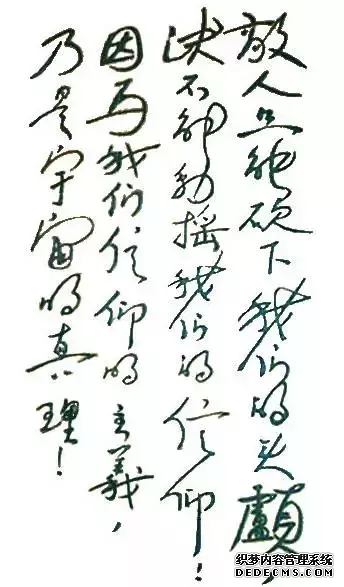 敵人只能砍下我们的头顱
决不能動摇我们的信仰！
因为我们信仰的主義，
乃是宇宙的真理！
织梦内容管理系统
DEDECMS.COM